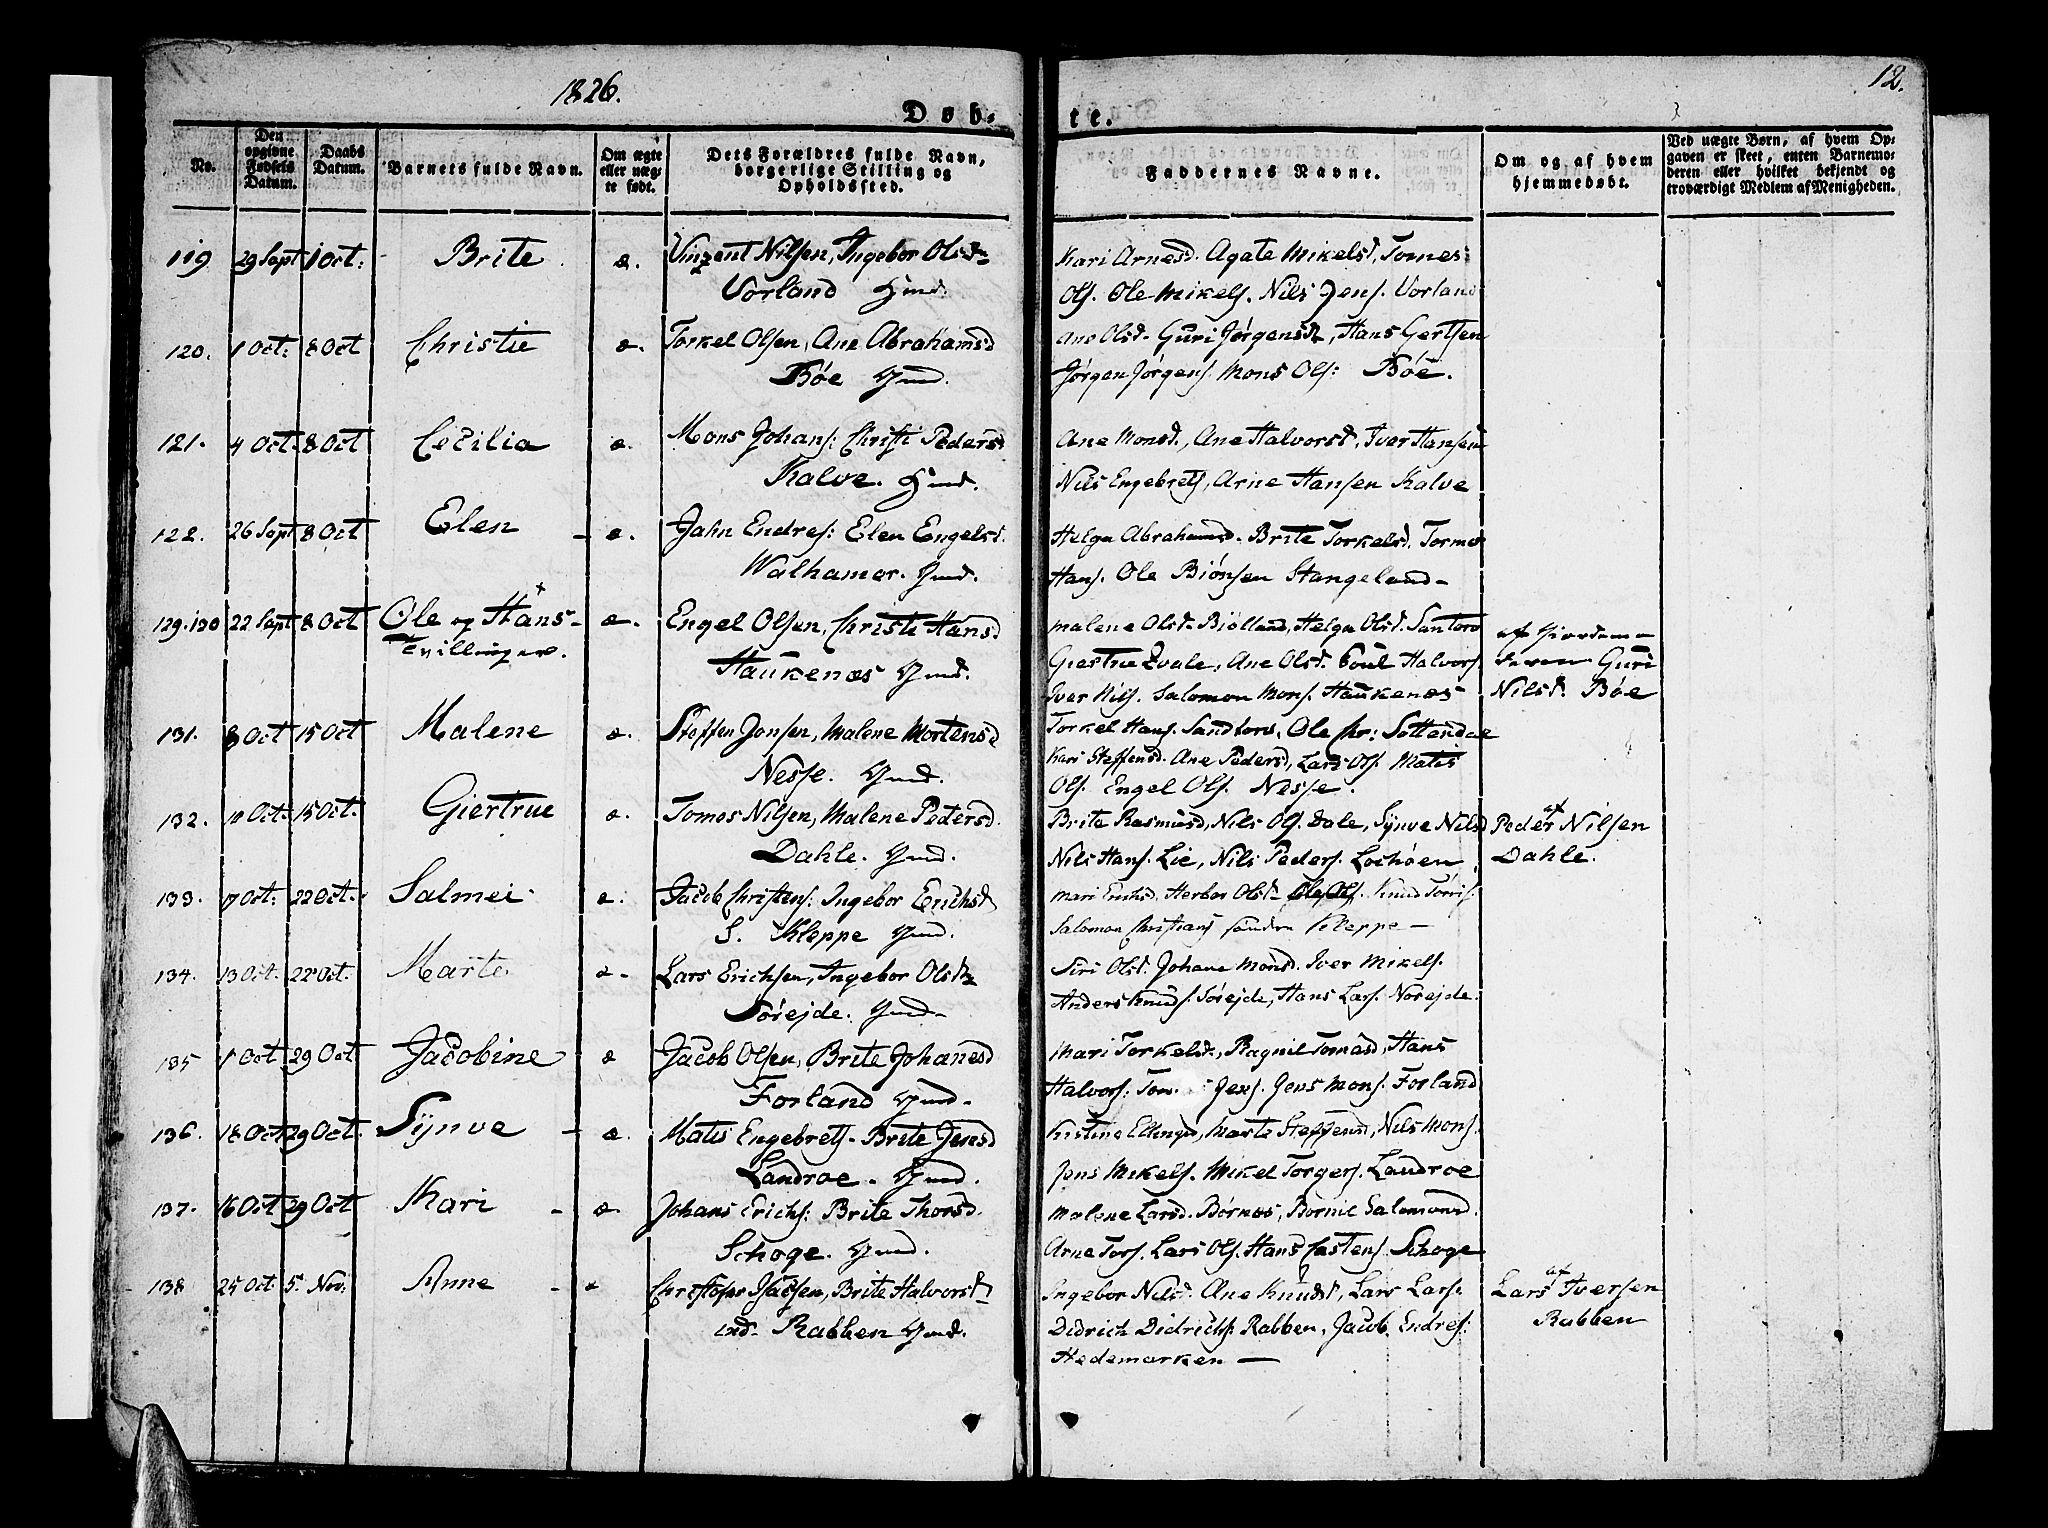 1826.
12.
Døb-
te.
No.
Den opgivne Fødsels Datum.
Daabs Datum.
Barnets fulde Navn.
Om ægte eller uæg-te født.
Dets Forældres fulde Navn, borgerlige Stilling og Opholdssted.
Faddernes Navne.
Om og af hvem hjemmedøbt.
Ved uægte Børn, af hvem Op-
gaven er skeet, enten Barnemo-
deren eller hvilket bekjendt og
troværdigt Medlem af Menigheden.
119 29 Sept 1 Oct: Brite æ. Vinzent Nilsen, Ingebor Olsd
Vorland Gmd.
Kari Arnesd. Agate Mikelsd, Tomes
Ols. Ole Mikels. Nils Jens. Vorland
120. 1 Oct: 8 Oct Christie æ. Torkel Olsen, Ane Abrahamsd
Bøe Gmd.
Ane Olsd. Guri Jørgensd, Hans Gertsen
Jørgen Jørgens. Mons Ols: Bøe.
121. 4 Oct. 8 Oct Cecilia æ. Mons Johans: Christi Peders
Kalve. Gmd.
Ane Monsd., Ane Halvorsd, Iver Hansen
Nils Engebrets, Arne Hansen Kalve
122. 26 Sept 8 Oct Elen - æ. Jahn Endres: Elen Engelsd.
Walhamer. Gmd.
Helga Abrahamsd. Brite Torkelsd. Tormo
Hans. Ole Biønsen Stangeland-
129.130 22 Sept 8 Oct Ole og Hans- æ. Engel Olsen, Christi Hansd
Tvillinger.
Haukenæs Gmd.
Malene Olsd. Biølland, Helga Olsd. Santorv
Giertrue Qvale, Ane Olsd. Poul Halvors.
Iver Nils. Salomon Mons. Haukenæs
af Giordemo-
deren Guri
Nilsd. Bøe
131. 8 Oct 15 Oct Malene æ. Steffen Jonsen, Malene Mortensd
Nesse. Gmd.
Torkel Hans. Sandtorv, Ole Chr:
Kari Steffensd. Ane Pedersd, Lars Ols. Matis
Ols. Engel Ols. Nesse.
132. 10 Oct: 15 Oct. Giertrue æ. Tomos Nilsen, Malene Pedersd.
Dahle. Gmd.
Brite Rasmusd, Nils Ols. Dale, Synve Nilsd
Nils Hans. Lie, Nils Peders. Lochøen
af
Peder Nilsen
Dahle.
133. 17 Oct: 22 Oct. Salmei æ. Jacob Christens: Ingebor Erichsd
S. Kleppe Gmd.
Mari Erichsd. Herbor Olsd. Ole Ols. Knud Tørris.
Salomon Christians søndre Kleppe-
134. 13 Oct. 22 Oct. Marte æ. Lars Erichsen, Ingebor Olsd
Sørejde. Gmd-
Siri Olsd. Johane Monsd. Iver Mikels.
Anders Knuds. Sørejde, Hans Lars. Norejde.
135 1 Oct 29 Oct. Jacobine æ Jacob Olsen, Brite Johanesd
Forland Gmd-
Mari Torkelsd., Ragnil Tomasd, Hans
Halvors. Jens. Jens Mons. Forland
136. 18 Oct 29 Oct. Synve - æ. Matis Engebrets- Brite Jensd
Landroe. Gmd.
Kistine Ellingsd, Marte Steffensd, Nils Mons.
Jens Mikels. Mikel Torgers. Landroe
137. 16 Oct 29 Oct Kari - æ- Johans Erichs: Brite Thorsd.
Schoge. Gmd.
Malene Larsd. Børnæs, Bornil Salomonsd.
Arne Tors. Lars Ols. Hans Castens. Schoge
138 25 Oct: 5. Nov: Anne - æ Christofer Isacsen, Brite Halvorsd
ind. Rabben Gmd.
Ingebor Nilsd. Ane Knudsd, Lars Lars:
Didrich Didrichs: Rabben, Jacob Endres:
Hedemarken-
af
Lars Iversen
Rabben